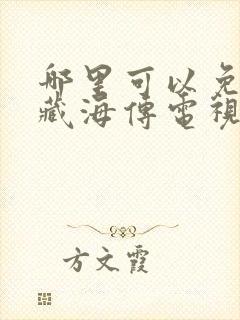 哪里可以免
藏海傳電視
方文霞